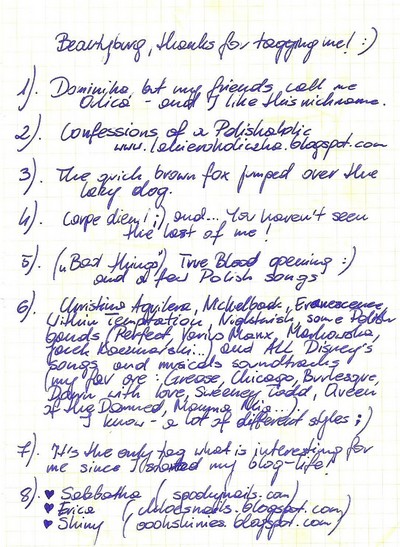 Beautyburg, thanks for tagging me! :)
1). Dominika, but my friends call me
- and I like this nickname.
2). Confessions of a Polishaholic
www.lakieroholiczka.blogspot.com
3). The quick brown fox jumped over the
lazy dog.
4). Carpe diem! ;) and... You haven't seen
the last of me!
5). („Bad things") True Blood opening :)
and a few Polish songs
6). Christina Aguilera, Nickelback, Evanescence,
Within Temptation, Nightwish, some Polish
bands (Perfect, Varius Manx, Markowska,
Jacek Kaczmarski...) and ALL Disney's
songs and musicals soundtracks
(my fav are: Grease, Chicago, Burlesque,
Down with love, Sweeney Todd, Queen
of the Damned, Mamma Mia...)
I know - a lot of different styles ;)
7). It's the only tag what is interesting for
me since I started my blog-life!
8). ♥ Sabbatha (spookynails.com)
♥ Erica ( .blogspot.com)
♥ Shiny (ooohshinies.blogspot.com)